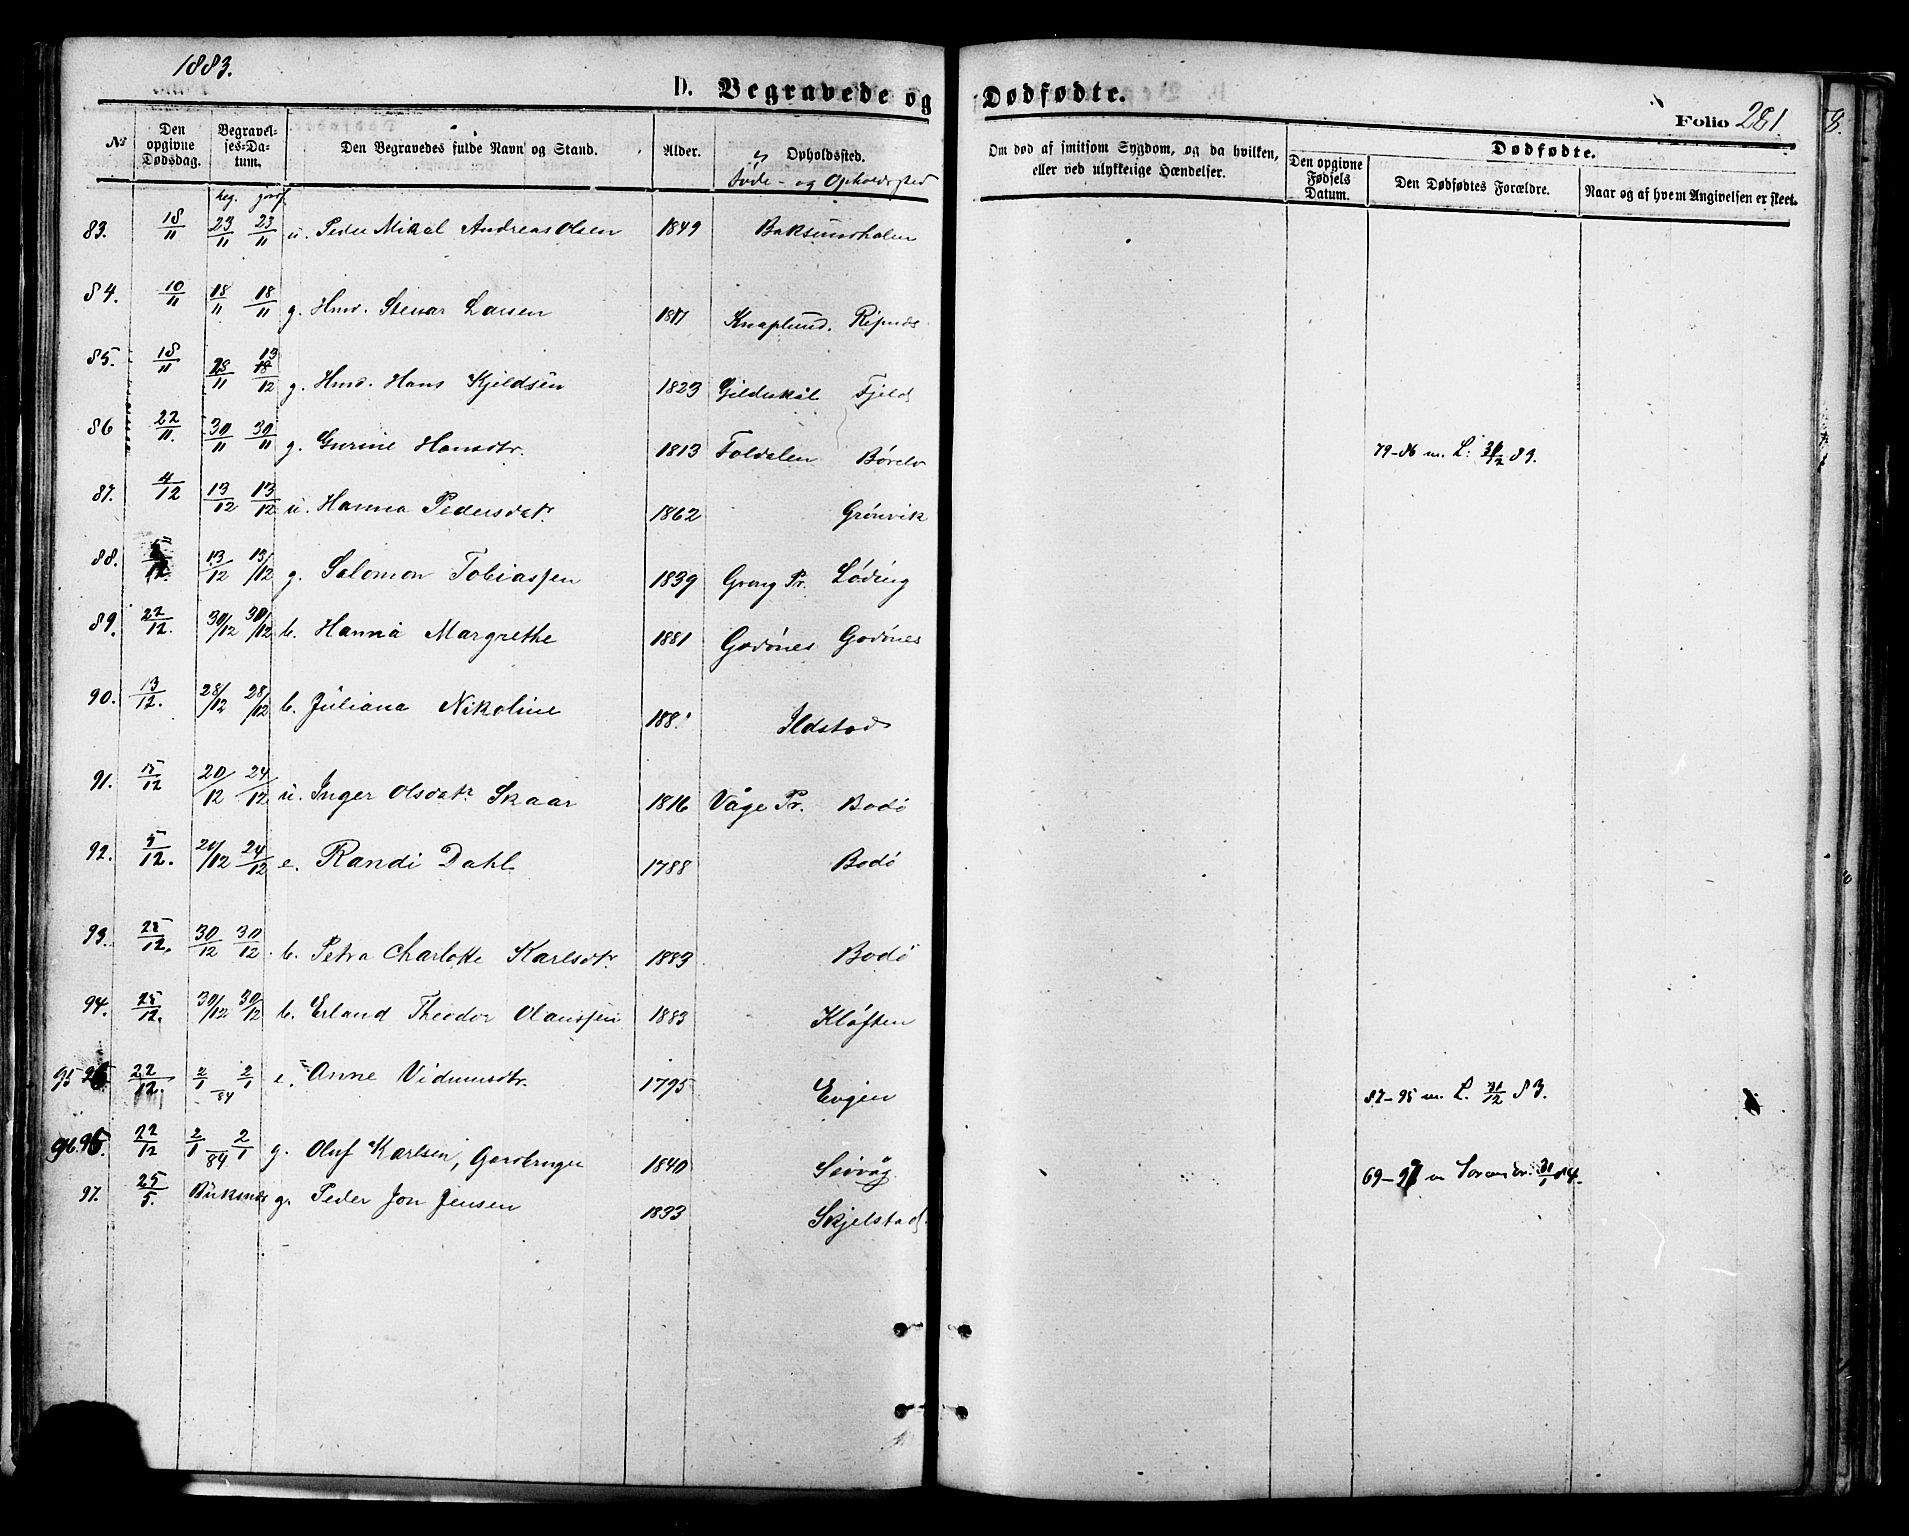 1883.
D. Begravede og Dødfødte.
Folio 281
No
Den opgivne Dødsdag.
Begravelses-Datum.
Den Begravedes fulde Navn og Stand.
Alder.
Opholdssted.
Føde- og Opholdssted
Om død af smitsom Sygdom, og da hvilken, eller ved ulykkelige Hændelser.
Dødfødte.
Den opgivne Fødsels Datum.
Den Dødfødtes Forældre.
Naar og af hvem Angivelsen er skeet.
83. 18/11 23/11 23/11 u. Peder Mikal Andreas Olsen 1849
84. 10/11 18/11 18/11 g. Hmd. Stenar Larsen 1817 Knaplund. Ripnes
85. 18/11 g. Hmd. Hans Kjeldsen 1823 Gildeskål Fjeld
86 22/11. 30/11 30/11 g. Gurine Hansdtr. 1813
79-86 m. L.
87. 4/12 13/12 13/12 u. Hanna Pedersdatr. 1862 Grønvik
88. 13/12 13/12 g. Salomon Tobiassen 1839 Grong Pr. Løding
89. 22/12. 30/12 30/12 b. Hanna Margrethe 1881 Godønes Godønes
90. 13/12. 28/12 28/12 b. Juliana Nikoline Ildstad
91. 15/12 20/12 24/12 u. Inger Olsdatr Skaar 1816 Våge Pr. Bodø
92. 5/12. 20/12 24/12 e. Randi Dahl 1788 Bodø
93. 25/12. 30/12 30/12 b. Petra Charlotte Karlsdtr. 1883 Bodø
94. 25/12. 30/12 30/12 b. Erland Theodor Olaussen 1883 Kløften
95 22/12. 2/1 84 2/1 e. Anne 1795 Evjen
87-95 m. L. 31/12 83.
96. 22/12 2/1 84 2/1 g. Oluf Karlsen, Gaardbruger 1840 Seivåg
97. 25/5. Buksnes g. Peder Jon Jensen 1833 Skjelstad